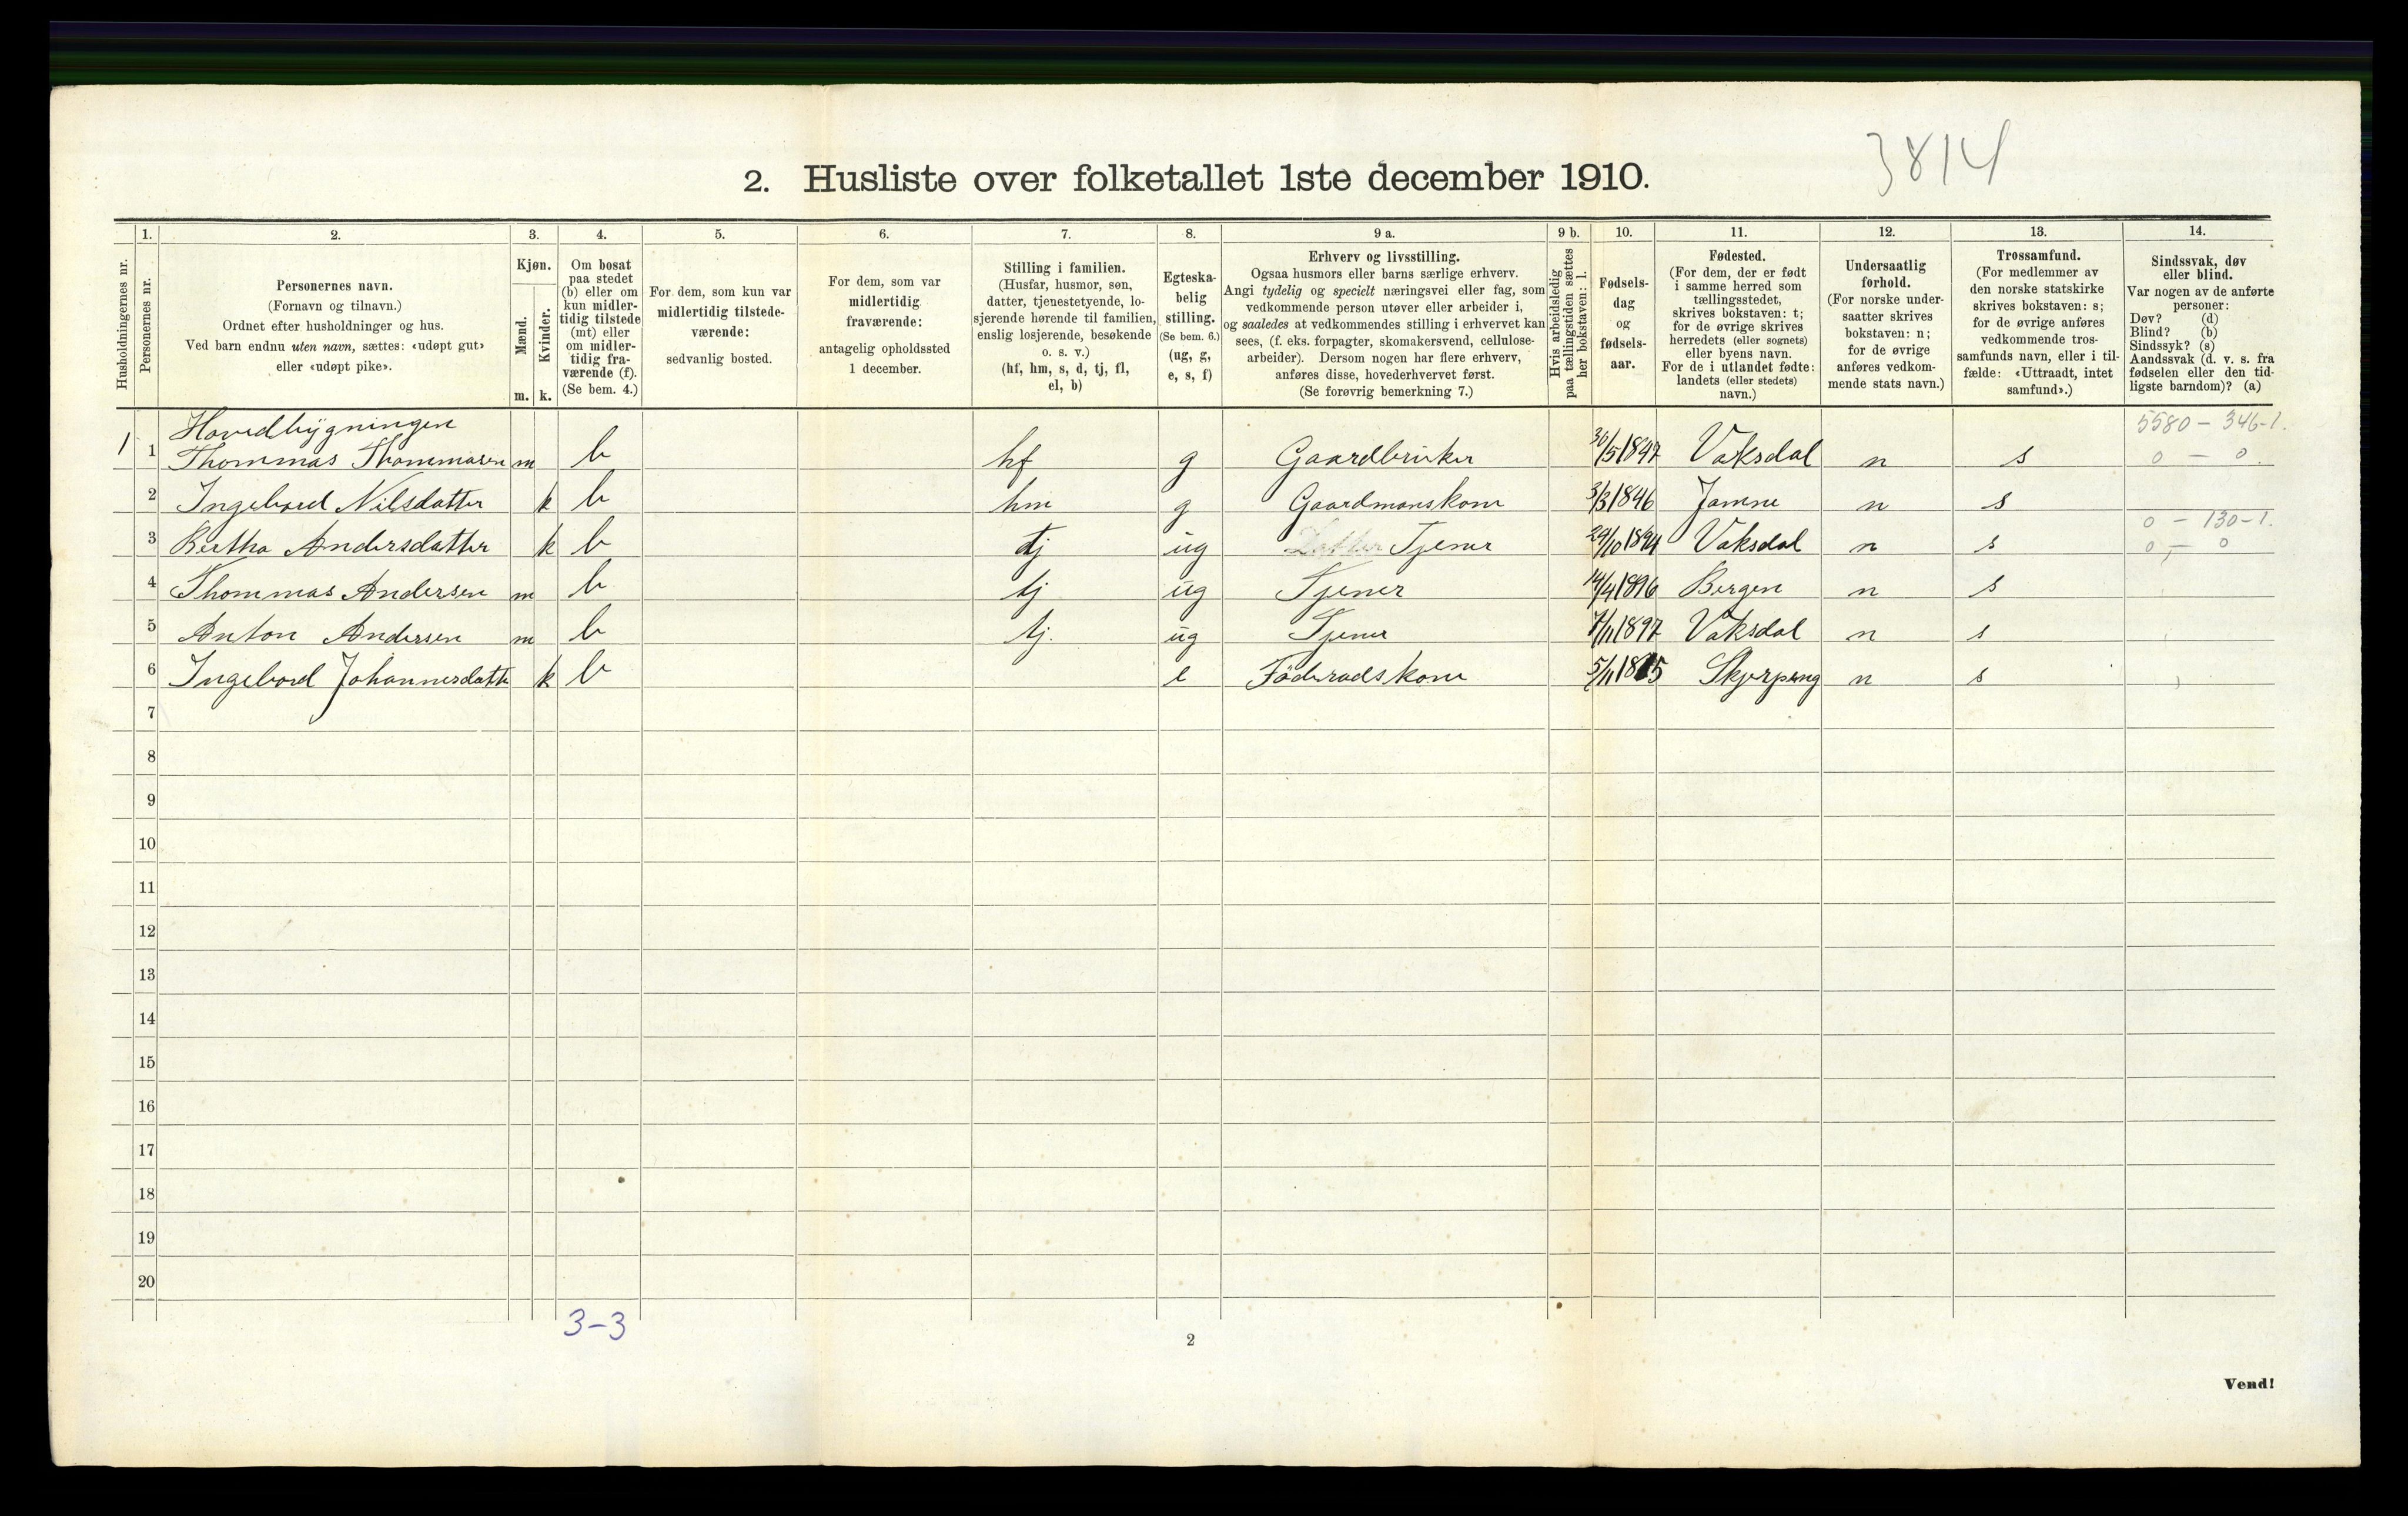 3814
2. Husliste over folketallet 1ste december 1910.
1. 2. 3. 4. 5. 6. 7. 8. 9 a. 9 b. 10. 11. 12. 13. 14.
Husholdningernes nr.
Personernes nr.
Personernes navn.
(Fornavn og tilnavn.)
Ordnet efter husholdninger og hus.
Ved barn endnu uten navn, sættes: «udøpt gut»
eller «udøpt pike».
Kjøn.
Mænd.
Kvinder.
m. k.
Om bosat
paa stedet
(b) eller om
kun midler-
tidig tilstede
(mt) eller
om midler-
tidig fra-
værende (f).
(Se bem. 4.)
For dem, som kun var
midlertidig tilstede-
værende:
sedvanlig bosted.
For dem, som var
midlertidig
fraværende:
antagelig opholdssted
1 december.
Stilling i familien.
(Husfar, husmor, søn,
datter, tjenestetyende, lo-
sjerende hørende til familien,
enslig losjerende, besøkende
o. s. v.)
(hf, hm, s, d, tj, fl,
el, b)
Egteska-
belig
stilling.
(Se bem. 6.)
(ug, g,
e, s, f)
Erhverv og livsstilling.
Ogsaa husmors eller barns særlige erhverv.
Angi tydelig og specielt næringsvei eller fag, som
vedkommende person utøver eller arbeider i,
og saaledes at vedkommendes stilling i erhvervet kan
sees, (f. eks. forpagter, skomakersvend, cellulose-
arbeider). Dersom nogen har flere erhverv,
anføres disse, hovederhvervet først.
(Se forøvrig bemerkning 7.)
Hvis arbeidsledig
paa tællingstiden sættes
her bokstaven: l.
Fødsels-
dag
og
fødsels-
aar.
Fødested.
(For dem, der er født
i samme herred som
tællingsstedet,
skrives bokstaven: t;
for de øvrige skrives
herredets (eller sognets)
eller byens navn.
For de i utlandet fødte:
landets (eller stedets)
navn.)
Undersaatlig
forhold.
(For norske under-
saatter skrives
bokstaven: n;
for de øvrige
anføres vedkom-
mende stats navn.)
Trossamfund.
(For medlemmer av
den norske statskirke
skrives bokstaven: s;
for de øvrige anføres
vedkommende tros-
samfunds navn, eller i til-
fælde: «Uttraadt, intet
samfund».)
Sindssvak, døv
eller blind.
Var nogen av de anførte
personer:
Døv? (d)
Blind? (b)
Sindssyk? (s)
Aandssvak (d. v. s. fra
fødselen eller den tid-
ligste barndom)? (a)
Hovedbygningen 5580 - 346-1.
1 1 Thommas Thommasen m b hf g Gaardbruker 30/5 1847 Vaksdal n s 0 - 0
2 Ingebord Nilsdatter k b hm g Gaardmanskone 3/3 1846 Jamne n s
0 - 130-1.
3 Bertha Andersdatter k b tj ug Datter Tjener 24/10 1894 Vaksdal n s 0 - 0
4 Thommas Andersen m b tj ug Tjener 14/4 1896 Bergen n s
5 Anton Andersen m b tj. ug Tjener 7/11 1897 Vaksdal n s
6 Ingebord Johannesdatte k b e Föderadskone 5/11 1815 Skjerping n s
7
8
9
10
11
12
13
14
15
16
17
18
19
20
3-3
2
Vend!